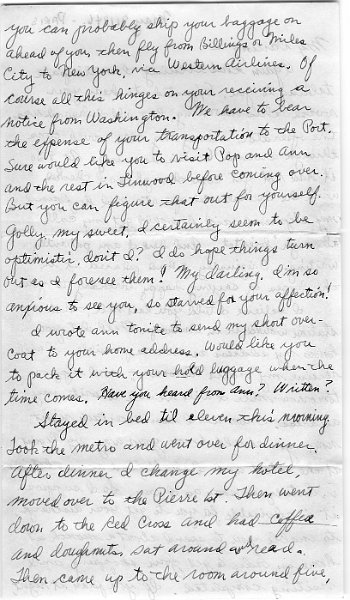 you can probably ship your baggage on
ahead of you, then fly from Billings or Miles
City to New York, via Western Airlines. Of
course all this hinges on your receiving a
notice from Washington. We have to bear
the expense of your transportation to the Port.
Sure would like you to visit Pop and Ann
and the rest in Linwood before coming over.
But you can figure that out for yourself.
Golly, my sweet, I certainly seem to be
optimistic, don't I? I do hope things turn
out as I foresee them! My darling. I'm so
anxious to see you, so starved for your affection!
I wrote Ann tonite to send my short over-
coat to your home address. Would like you
to pack it with your hold luggage when the
time comes. Have you heard from Ann? Written?
Stayed in bed til eleven this morning.
Took the metro and went over for dinner.
After dinner I change my hotel,
moved over to the Pierre 1st. Then went
down to the Red Cross and had coffee
and doughnuts, sat around and read.
Then came up to the room around five,